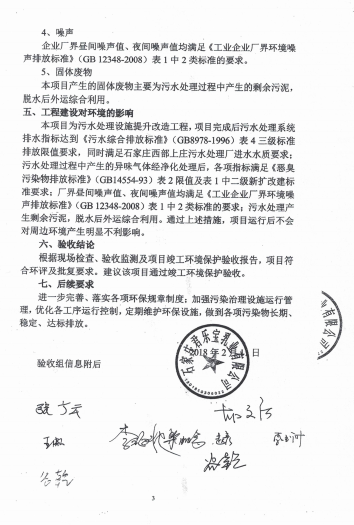 4、噪声
企业厂界昼间噪声值、夜间噪声值均满足《工业企业厂界环境噪
声排放标准》（GB 12348-2008）表 1 中 2 类标准的要求。
5、固体废物
本项目产生的固体废物主要为污水处理过程中产生的剩余污泥，
脱水后外运综合利用。
五、工程建设对环境的影响
本项目为污水处理设施提升改造工程，项目完成后污水处理系统
排水指标达到《污水综合排放标准》（GB8978-1996）表 4 三级标准
排放限值要求，同时满足石家庄西部上庄污水处理厂进水水质要求；
污水处理过程中产生的异味气体经净化处理后，各项指标满足《恶臭
污染物排放标准》（GB14554-93）表 2 限值及表 1 中二级新扩改建标
准要求；厂界昼间噪声值、夜间噪声值均满足《工业企业厂界环境噪
声排放标准》（GB 12348-2008）表 1 中 2 类标准的要求；污水处理产
生剩余污泥，脱水后外运综合利用。通过上述措施，项目运行后不会
对周边环境产生明显不利影响。
六、验收结论
根据现场检查、验收监测及项目竣工环境保护验收报告，项目符
合环评及批复要求。建议该项目通过竣工环境保护验收。
七、后续要求
进一步完善、落实各项环保规章制度；加强污染治理设施运行管
理，优化各工序运行控制，定期维护环保设施，做到各项污染物长期、
稳定、达标排放。
石家庄君乐宝乳业有限公司
2018 年 2 日
有限公司
验收组信息附后
3